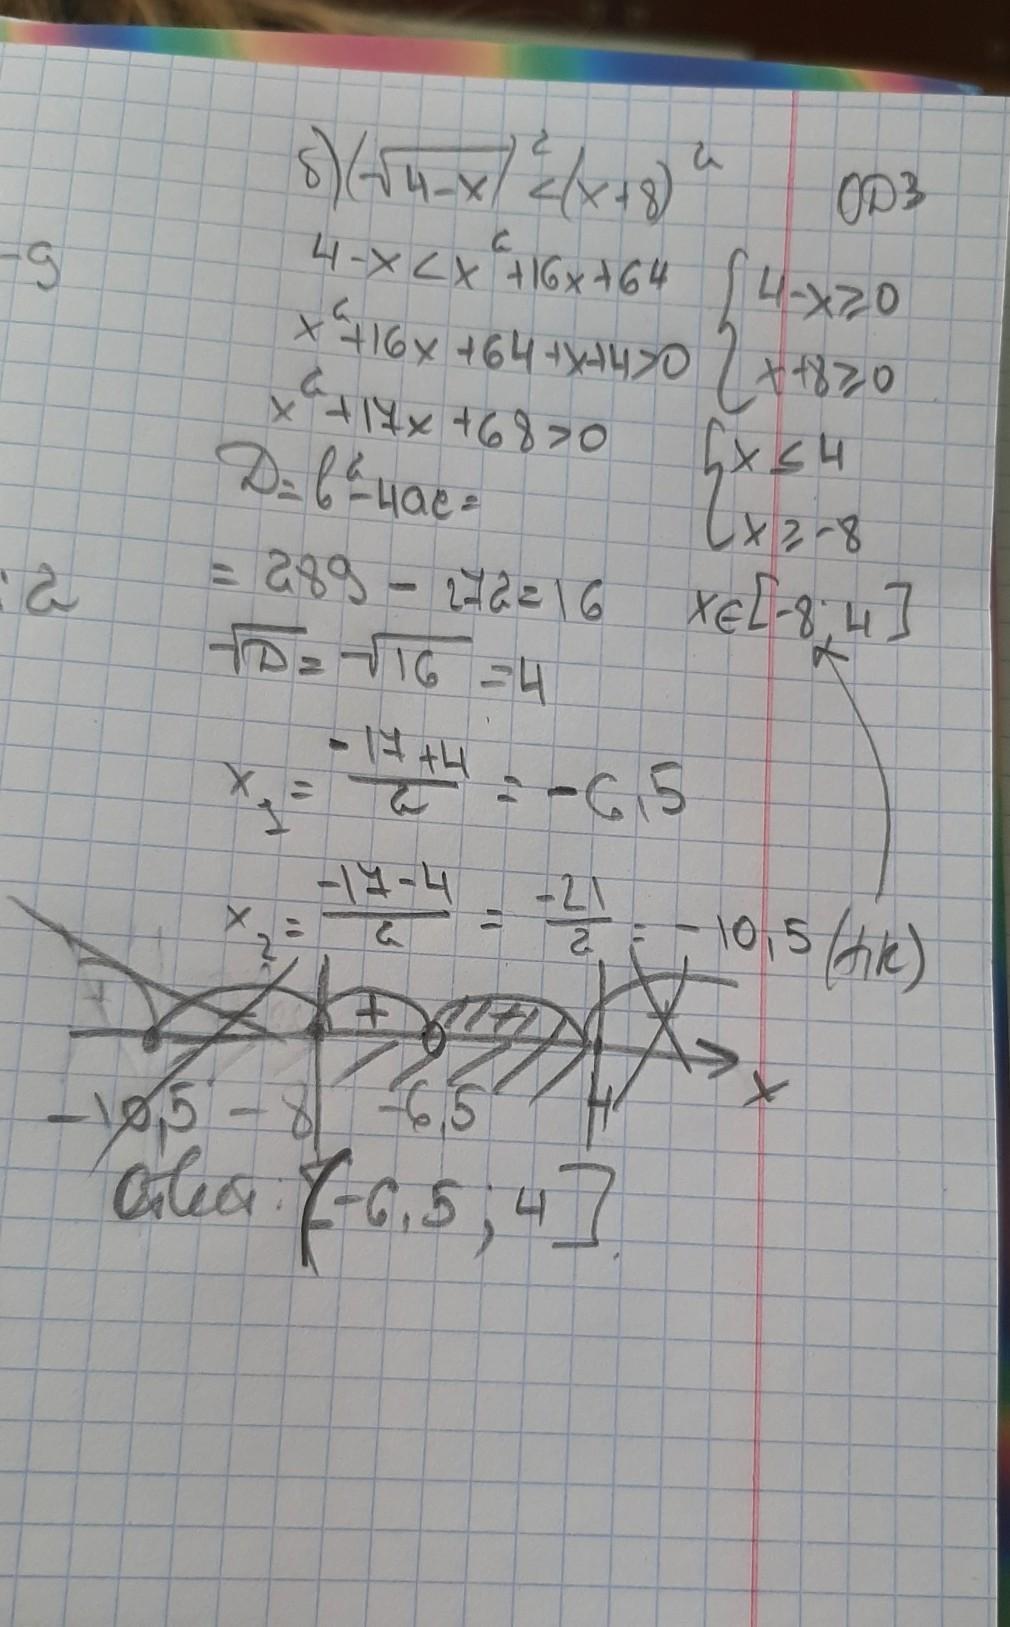 -9
:2
б) (√4-x)² < (x+8)²
4-x < x²+16x+64
x²+16x+64+x+4>0
x²+17x+68>0
D=b²-4ac=
= 289 - 272=16
√D = √16 = 4
x₁ = (-17+4)/2 = -6,5
x₂ = (-17-4)/2 = -21/2 = -10,5 (тк)
ОДЗ
{4-x≥0
x+8≥0
{x≤4
x≥-8
x∈[-8;4]
+ +
-10,5 -8 -6,5 4 x
[-6,5;4].